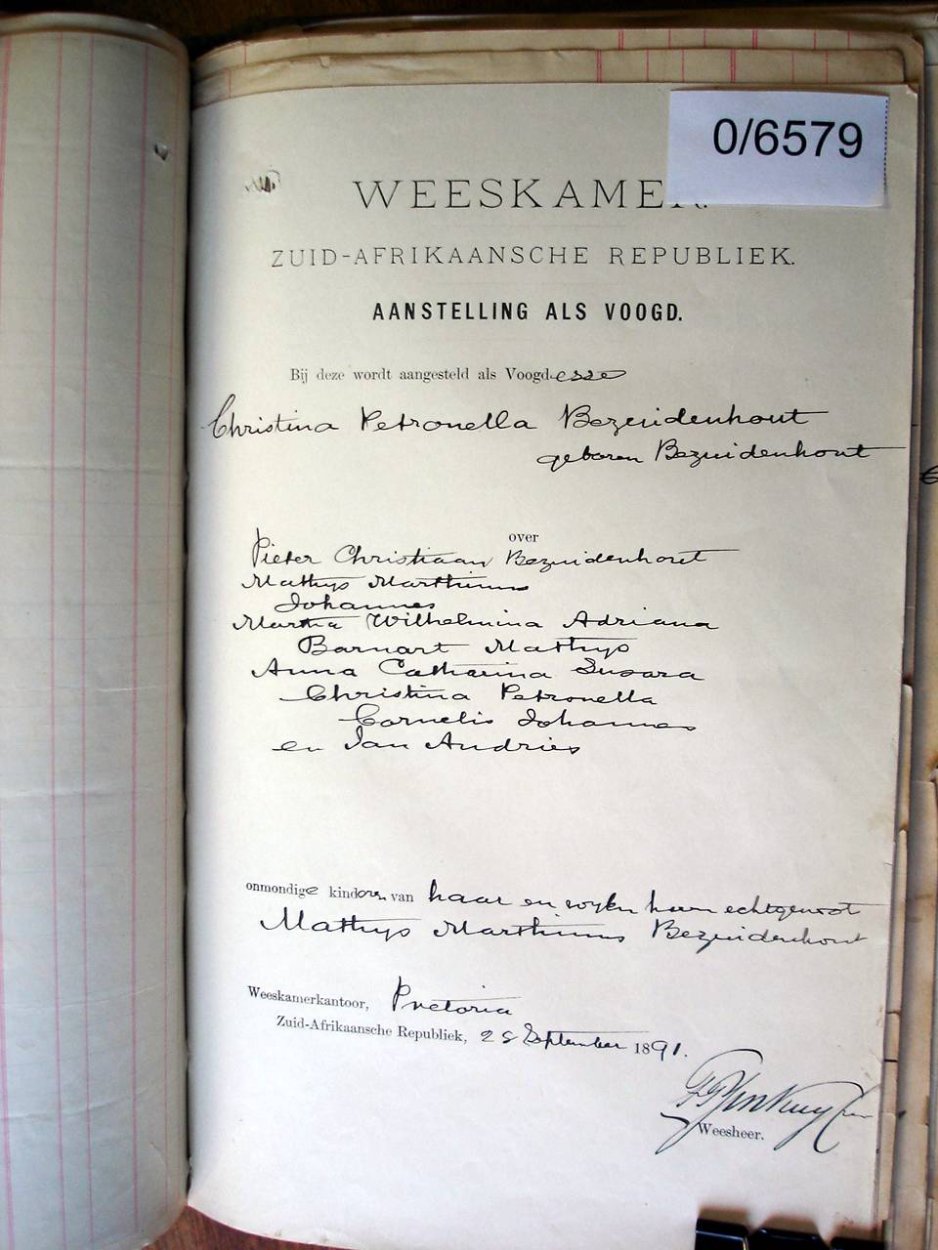 0/6579
WEESKAMER.
ZUID-AFRIKAANSCHE REPUBLIEK.
AANSTELLING ALS VOOGD.
Bij deze wordt aangesteld als Voogdesse
Christina Petronella Bezuidenhout
geboren Bezuidenhout
over
Pieter Christiaan Bezuidenhout
Mathys Marthinus
Johannes
Martha Wilhelmina Adriana
Barnart Mathys
Anna Catharina Susara
Christina Petronella
Cornelis Johannes
en Jan Andries
onmondige kinderen van haar en wylen haren echtgenoot
Mathys Marthinus Bezuidenhout
Weeskamerkantoor, Pretoria
Zuid-Afrikaansche Republiek, 28 September 1891.
Weesheer.